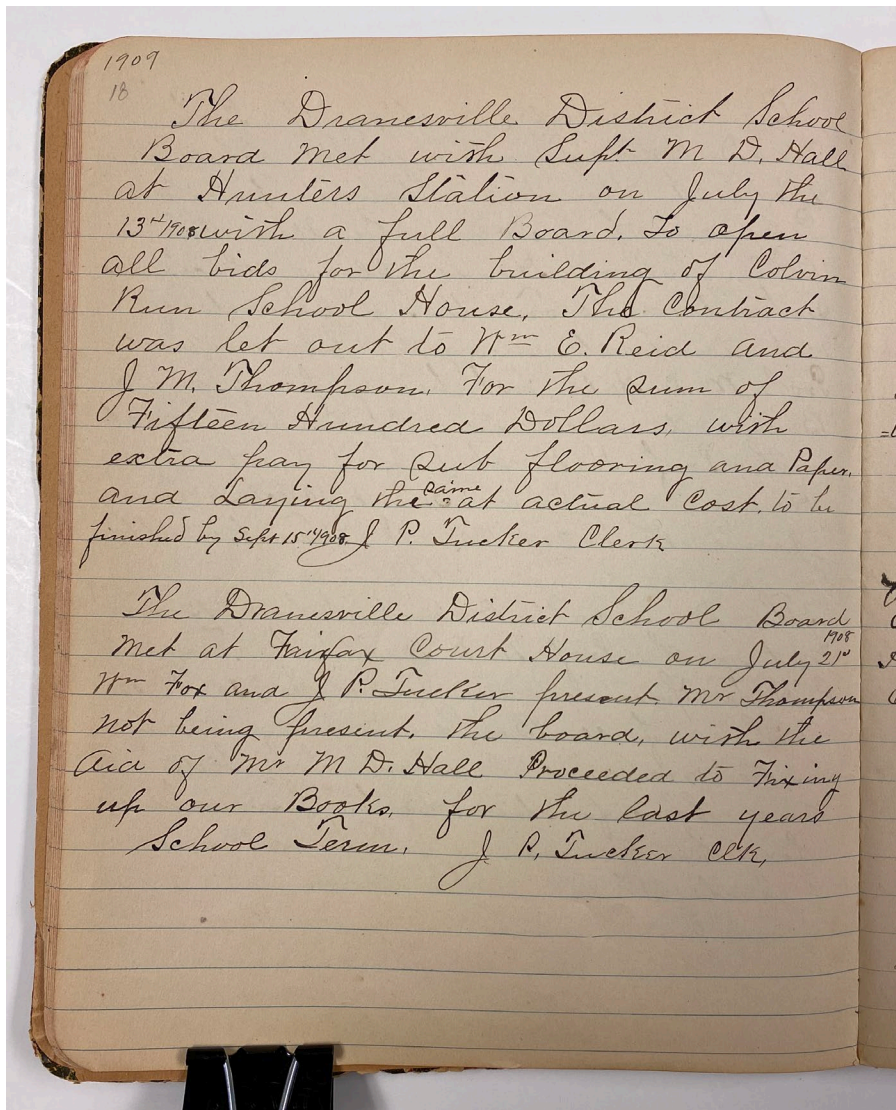 1909
18
The Dranesville District School
Board met with Supt M D. Hall
at Hunters Station on July the
13th 1908 with a full Board. To open
all bids for the building of Colvin
Run School House. The Contract
was let out to Wm E. Reid and
J. M. Thompson. For the sum of
Fifteen Hundred Dollars, with
extra pay for sub flooring and Paper,
and Laying the same at actual Cost. to be
finished by Sept 15th 1908. J P. Tucker Clerk
The Dranesville District School Board
met at Fairfax Court House on July 21st 1908
Wm Fox and J P. Tucker present Mr Thompson
not being present. the board, with the
Aid of Mr M D. Hall Proceeded to Fixing
up our Books, for the last years
School Term. J P. Tucker Clk,